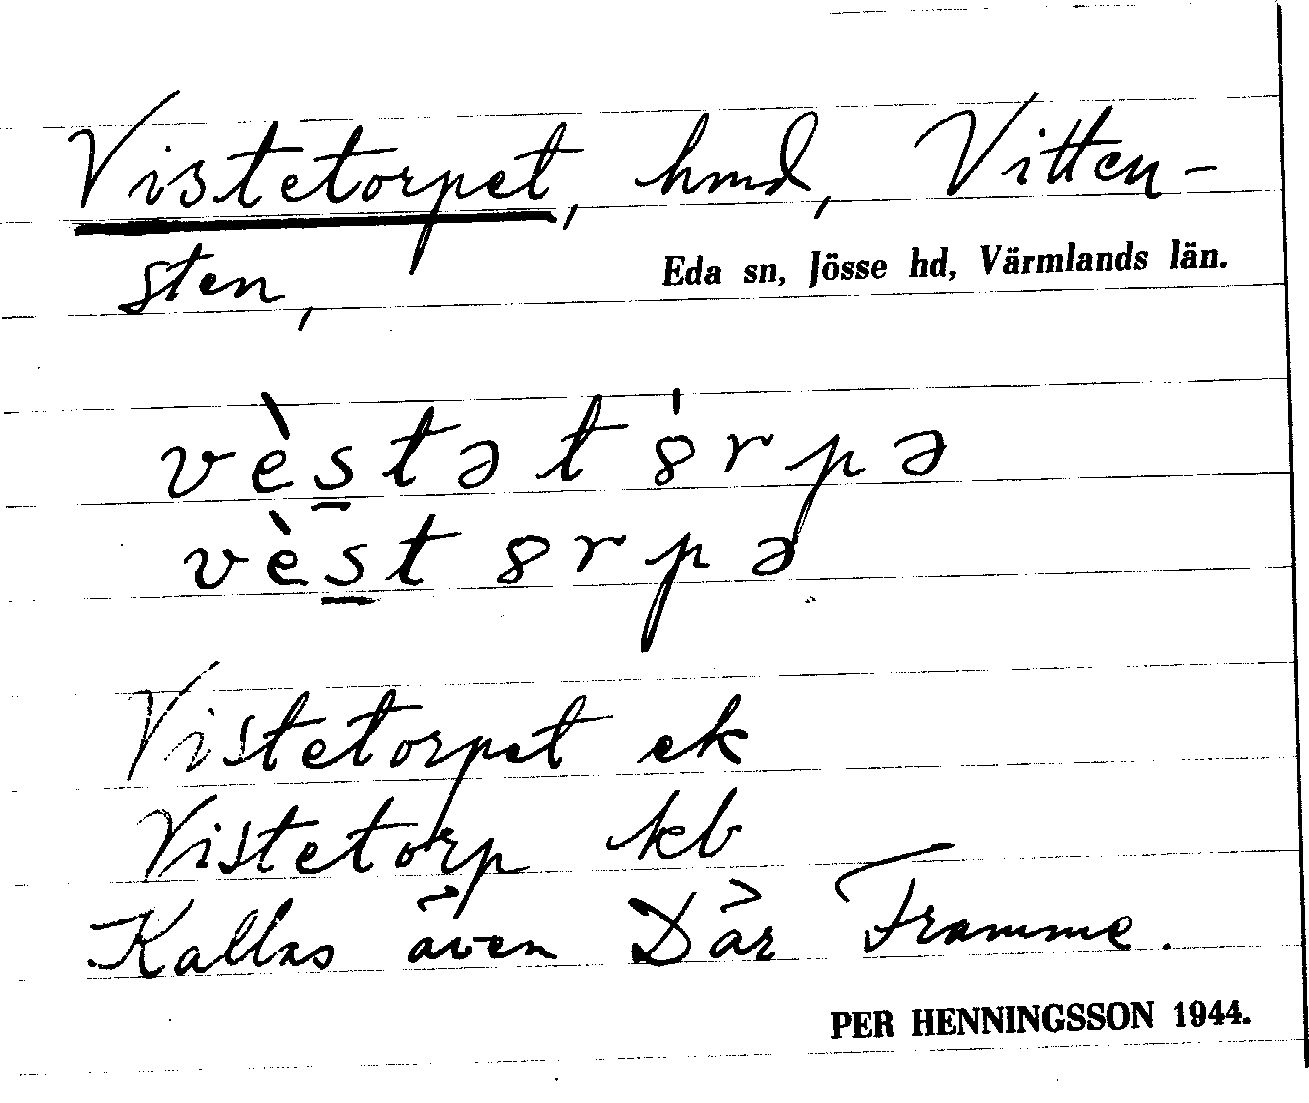 Vistetorpet, hmd, Vitten-
sten,
Eda sn, Jösse hd, Värmlands län.
vès̲tətȣ̍rpə
vès̲tȣrpə
Vistetorpet ek
Vistetorp kb
Kallas även Där Framme.
PER HENNINGSSON 1944.